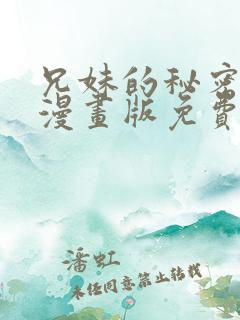 兄妹的秘密
漫畫版免費
潘虹
未经同意禁止转载